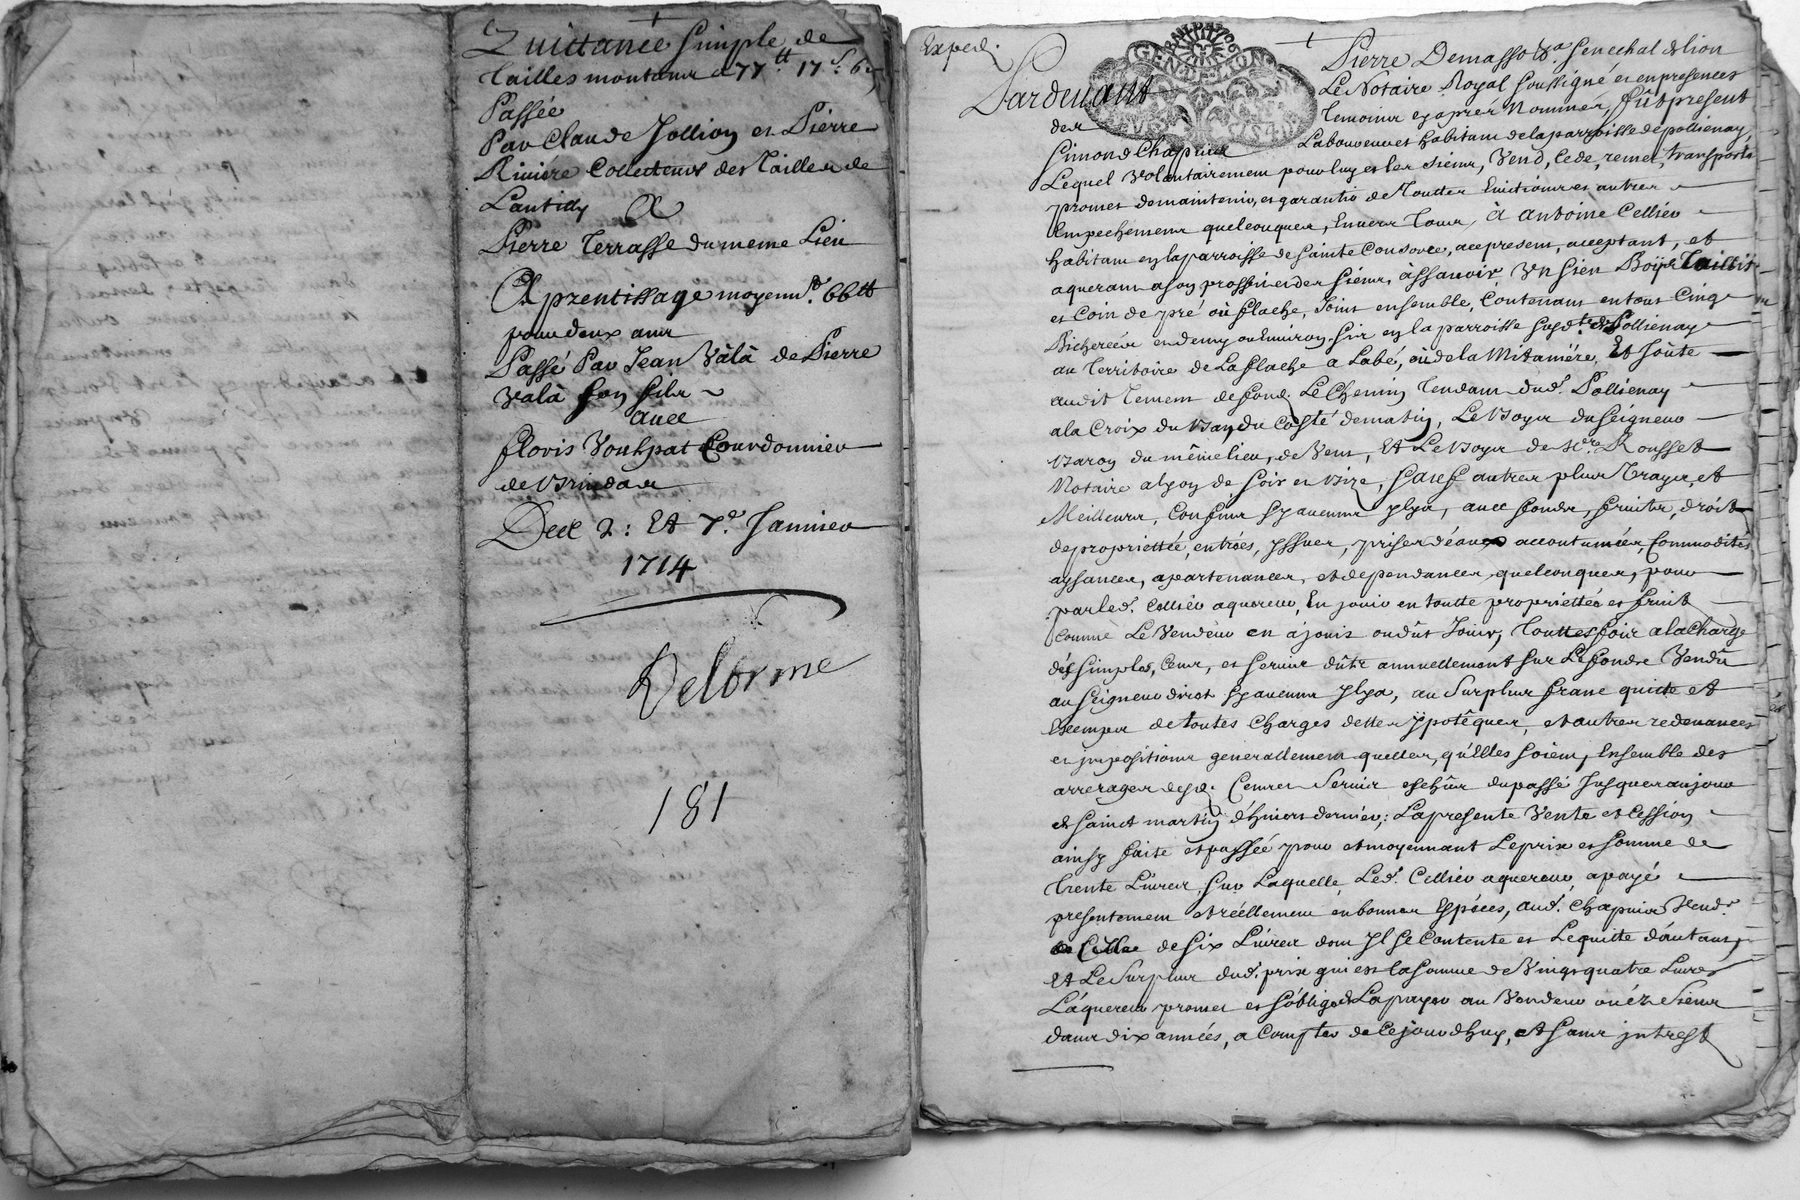 Quittance simple de
Tailles montant a 77tt 17s 6d
Passée
Par Claude Jollion et Pierre
Riviére Collecteurs des Tailles de
Lantilly A
Pierre Terrasse du meme Lieu
Aprentissage moyenn.t 66tt
pour deux ans
Passé Par Jean Valà de Pierre
Valà son fils
avec
floris Courdonnier
de Brindas
Des 2: Et 7.e Janvier
1714
Delorme
181
Exped.
GEN DE LION
Pardevant
Pierre Demasso &.a senechal de lion
Le Notaire Royal soussigné et en presences
des
temoins cy aprés Nommés, fût present
Simond Chapuis
Laboureur et habitant de la parroisse de pollienay,
Lequel Volontairement pour luy et les siens, Vend, Cede, remet, transporte
promet de maintenir, et garantir de Toutes Evictions et autres
Empechemens quelconques, Envers Tous, à antoine Cellier
habitant en la parroisse de sainte Consorce, acepresent, acceptant, et
aquerant a son proffit et des siens, àssavoir, Un sien Boys Taillis
et Coin de pré où flache, Joint ensemble, Contenant en tout Cinq
Bicherées en demy ou Environ, sis en la parroisse susd.te de Pollienay
au Territoire de La flache a Labé, où de la Mitamére, Et Joûte
audit Tement de fond. Le Chemin Tendant dud. Pollienay
a la Croix du Ban du Costé de matin, Le Boys du seigneur
Baron du même lieu, de Vent, Et Le Boys de M.re Rousset
Notaire a lyon de soir et Bize, sauf autres plus Vrays, et
Meilleurs, Confins sy aucuns ylya, avec fonds, fruits, droits
de proprietté, entrées, yssues, prises déaux accoutumées, Commodités
aysances, apartenances, et dependances, quelconques, pour
par led. Cellier aquereur, En jouir en toutte proprietté et fruits
Comme Le Vendeur en a jouis ou dût Jouir, Touttesfois a la Charge
des simples, Cens, et servis dûts annuellement sur Le fonds Vendu
au seigneur direct sy aucuns ylya, au surplus franc quitte et
Exempt de toutes Charges dettes ypotêques, et autres redevances
et impositions generallement quelles, qu'Elles soient, Ensemble des
arrerages desd. Cens et servis eschûs du passé Jusques au jour
de sainct martin d'hivers dernier; La presente Vente et Cession
ainsy faite et passée pour et moyennant Le prix et somme de
Trente Livres, sur Laquelle, Led. Cellier aquereur, a payé
presentement et réellement en bonnes Espéces, aud. Chapuis Vend.r
Celle de six Livres dont Il se Contente et Le quitte d'autant,
Et Le surplus dud. prix qui est la somme de Vingt quatre Livres
L'aquereur promet et s'oblige de La payer au Vendeur ou éz siens
dans dix années, a Compter de Ce jourdhuy, et sans intrest